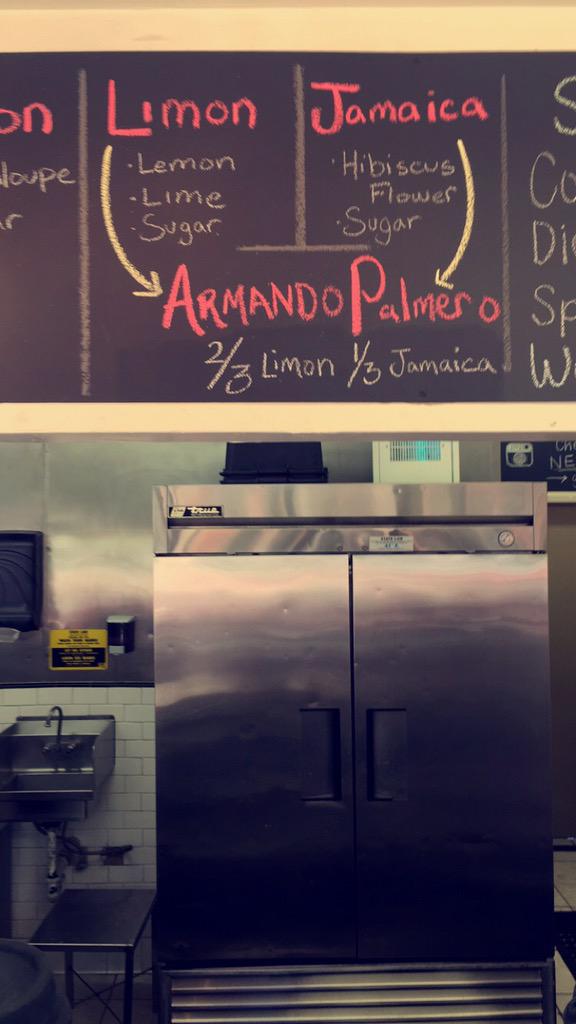 on
loupe
r
Limon
· Lemon
· Lime
· Sugar
Jamaica
· Hibiscus
Flower
· Sugar
ARMANDO Palmero
2/3 Limon 1/3 Jamaica
S
Co
Die
Sp
W
true
NE